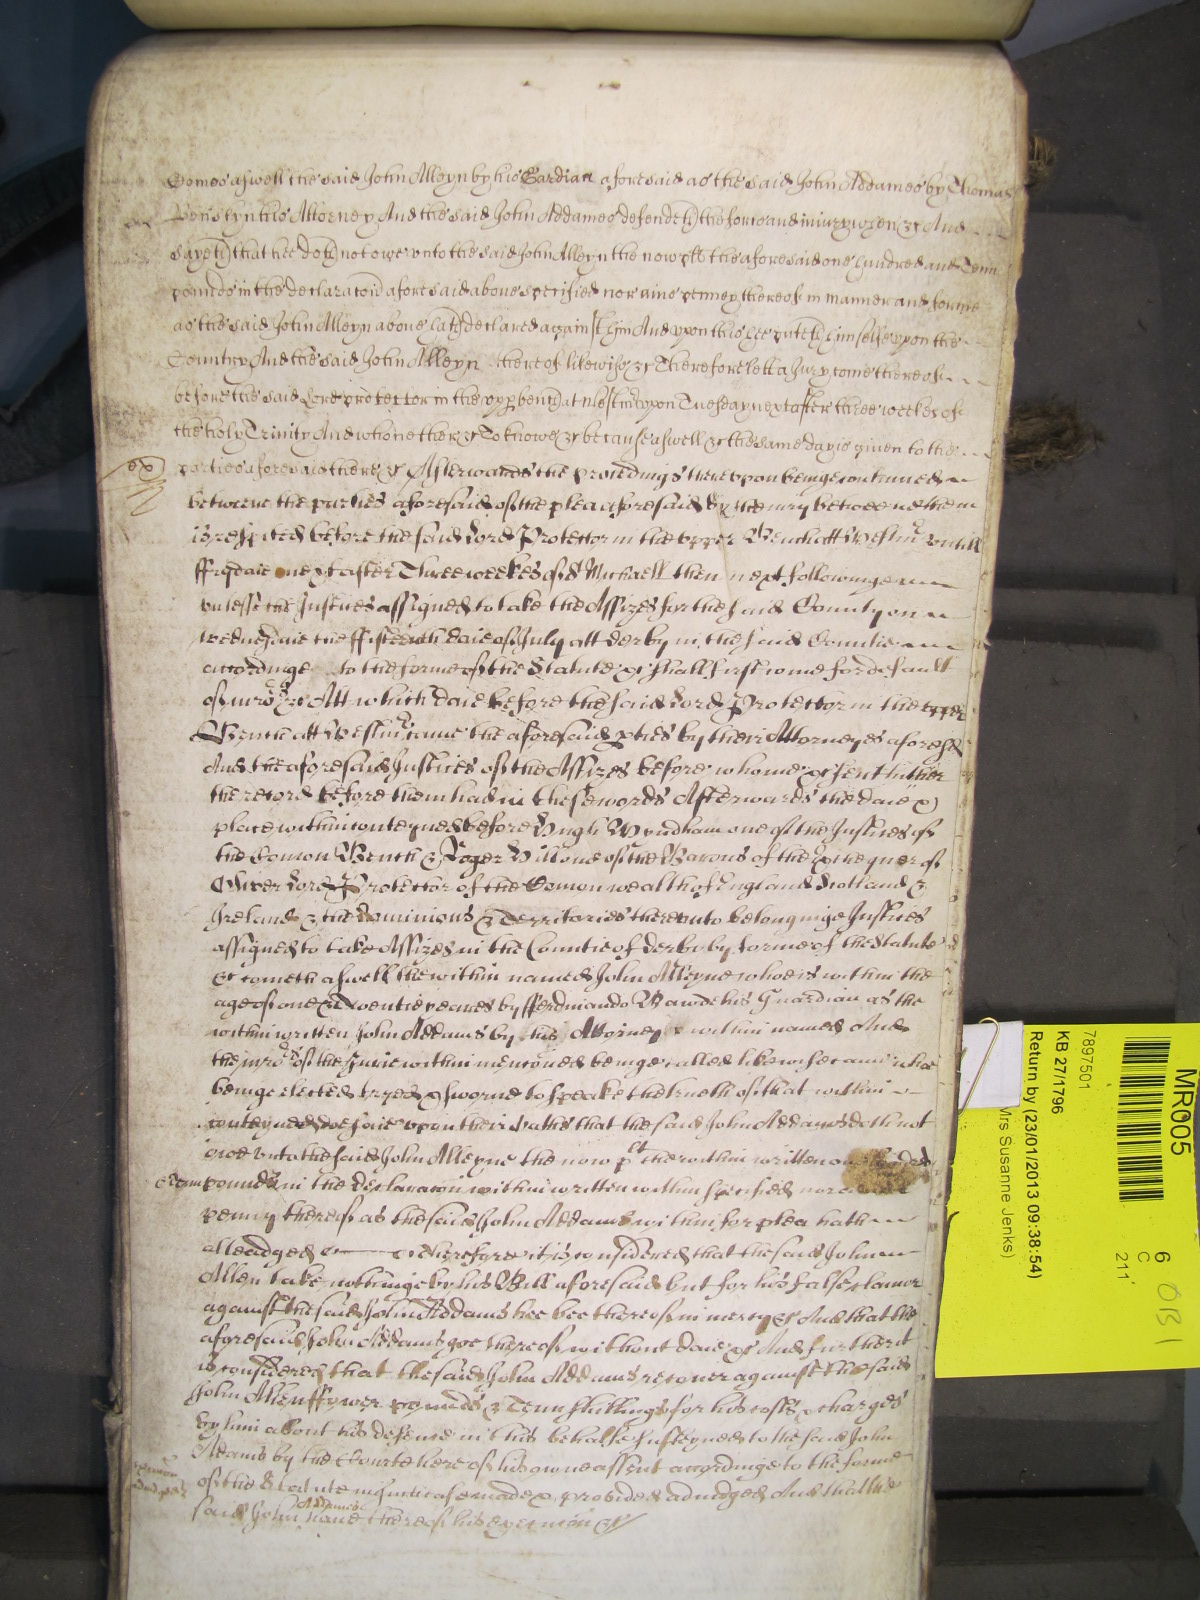 Comes aswell the said John Alleyn by his Gardian aforesaid as the said John Addames by Thomas
his Attorney And the said John Addames defendeth the force and iniury when &c And
sayeth that hee doth not owe vnto the said John Alleyn the now plt the aforesaid one hundred and Tenn
pounds in the declaracon aforesaid above specified nor anie penney thereof in manner and forme
as the said John Alleyn above hath declared against him And vpon this hee putteth himselfe vpon the
Country And the said John Alleyn thereof likewise &c Therefore lett a Jury come thereof
before the said Lord protector in the vpper bench at Westmr vpon Tuesday next after three weekes of
the holy Trinity And who neither &c To knowe &c because aswell &c the same day is given to the
parties aforesaid there &c Afterwards the proceedings therevpon beinge continued
betweene the parties aforesaid of the plea aforesaid by the iury betweene them
is respited before the said Lord Protector in the vpper Bench att Westmr vntill
ffrydaie next after Three weekes of St Michaell then next followinge
vnlesse the Justices assigned to take the Assizes for the said County on
wednesdaie the ffifteenth daie of July att derby in the said Countie
accordinge to the forme of the Statute &c shall first come for default
of iurors &c Att which daie before the said Lord Protector in the vpper
Bench att Westmr came the aforesaid pties by their Attorneyes aforesd
And the aforesaid Justices of the Assizes before whome &c sent hither
the record before them had in these words Afterwards the daie &
place within conteyned before Hugh Wyndham one of the Justices of
the Comon Bench & Roger Hill one of the Barons of the Exchequer of
Oliver Lord Protector of the Comonwealth of England Scotland &
Ireland & the dominions & Territories therevnto belonginge Justices
assigned to take Assizes in the Countie of derby by forme of the Statute
&c cometh aswell the within named John Alleyne who is within the
age of one & twentie yeares by fferdinando his Guardian as the
within written John Addams by his Attorney within named And
the iurors of the Jurie within mencioned beinge called likewise came who
beinge elected tryed & sworne to speake the trueth of that within
conteyned doe saie vpon their oathes that the said John Addams doth not
owe vnto the said John Alleyne the now plt the within written one hundred
& Tenn pounds in the declaracon within written within specified nor anie
penny thereof as the said John Addams within for plea hath
alleadged &c Therefore it is considered that the said John
Allen take nothinge by his Bill aforesaid but for his false clamor
against the said John Addams hee bee thereof in mercy &c And that the
aforesaid John Addams goe thereof without daie &c And further it
is considered that the said John Addams recover against the said
John Allen ffower pounds & Tenn shillings for his costs & charges
by him about his defence in this behalfe susteyned to the said John
Adams by the Courte here of his owne assent accordinge to the forme
of the Statute in such case made & provided adiudged And that the
said John Addams have thereof his execucion &c
MR005
6
C
211'
7897501
KB 27/1796
Return by (23/01/2013 09:38:54)
Mrs Susanne Jenks)